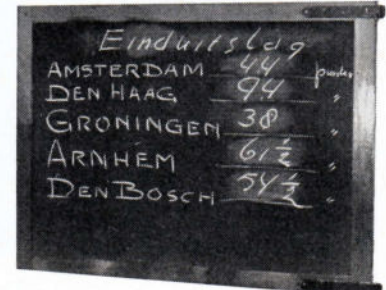 Einduitslag
AMSTERDAM 44 punten
DEN HAAG 94 "
GRONINGEN 38 "
ARNHEM 61 1/2 "
DEN BOSCH 54 1/2 "